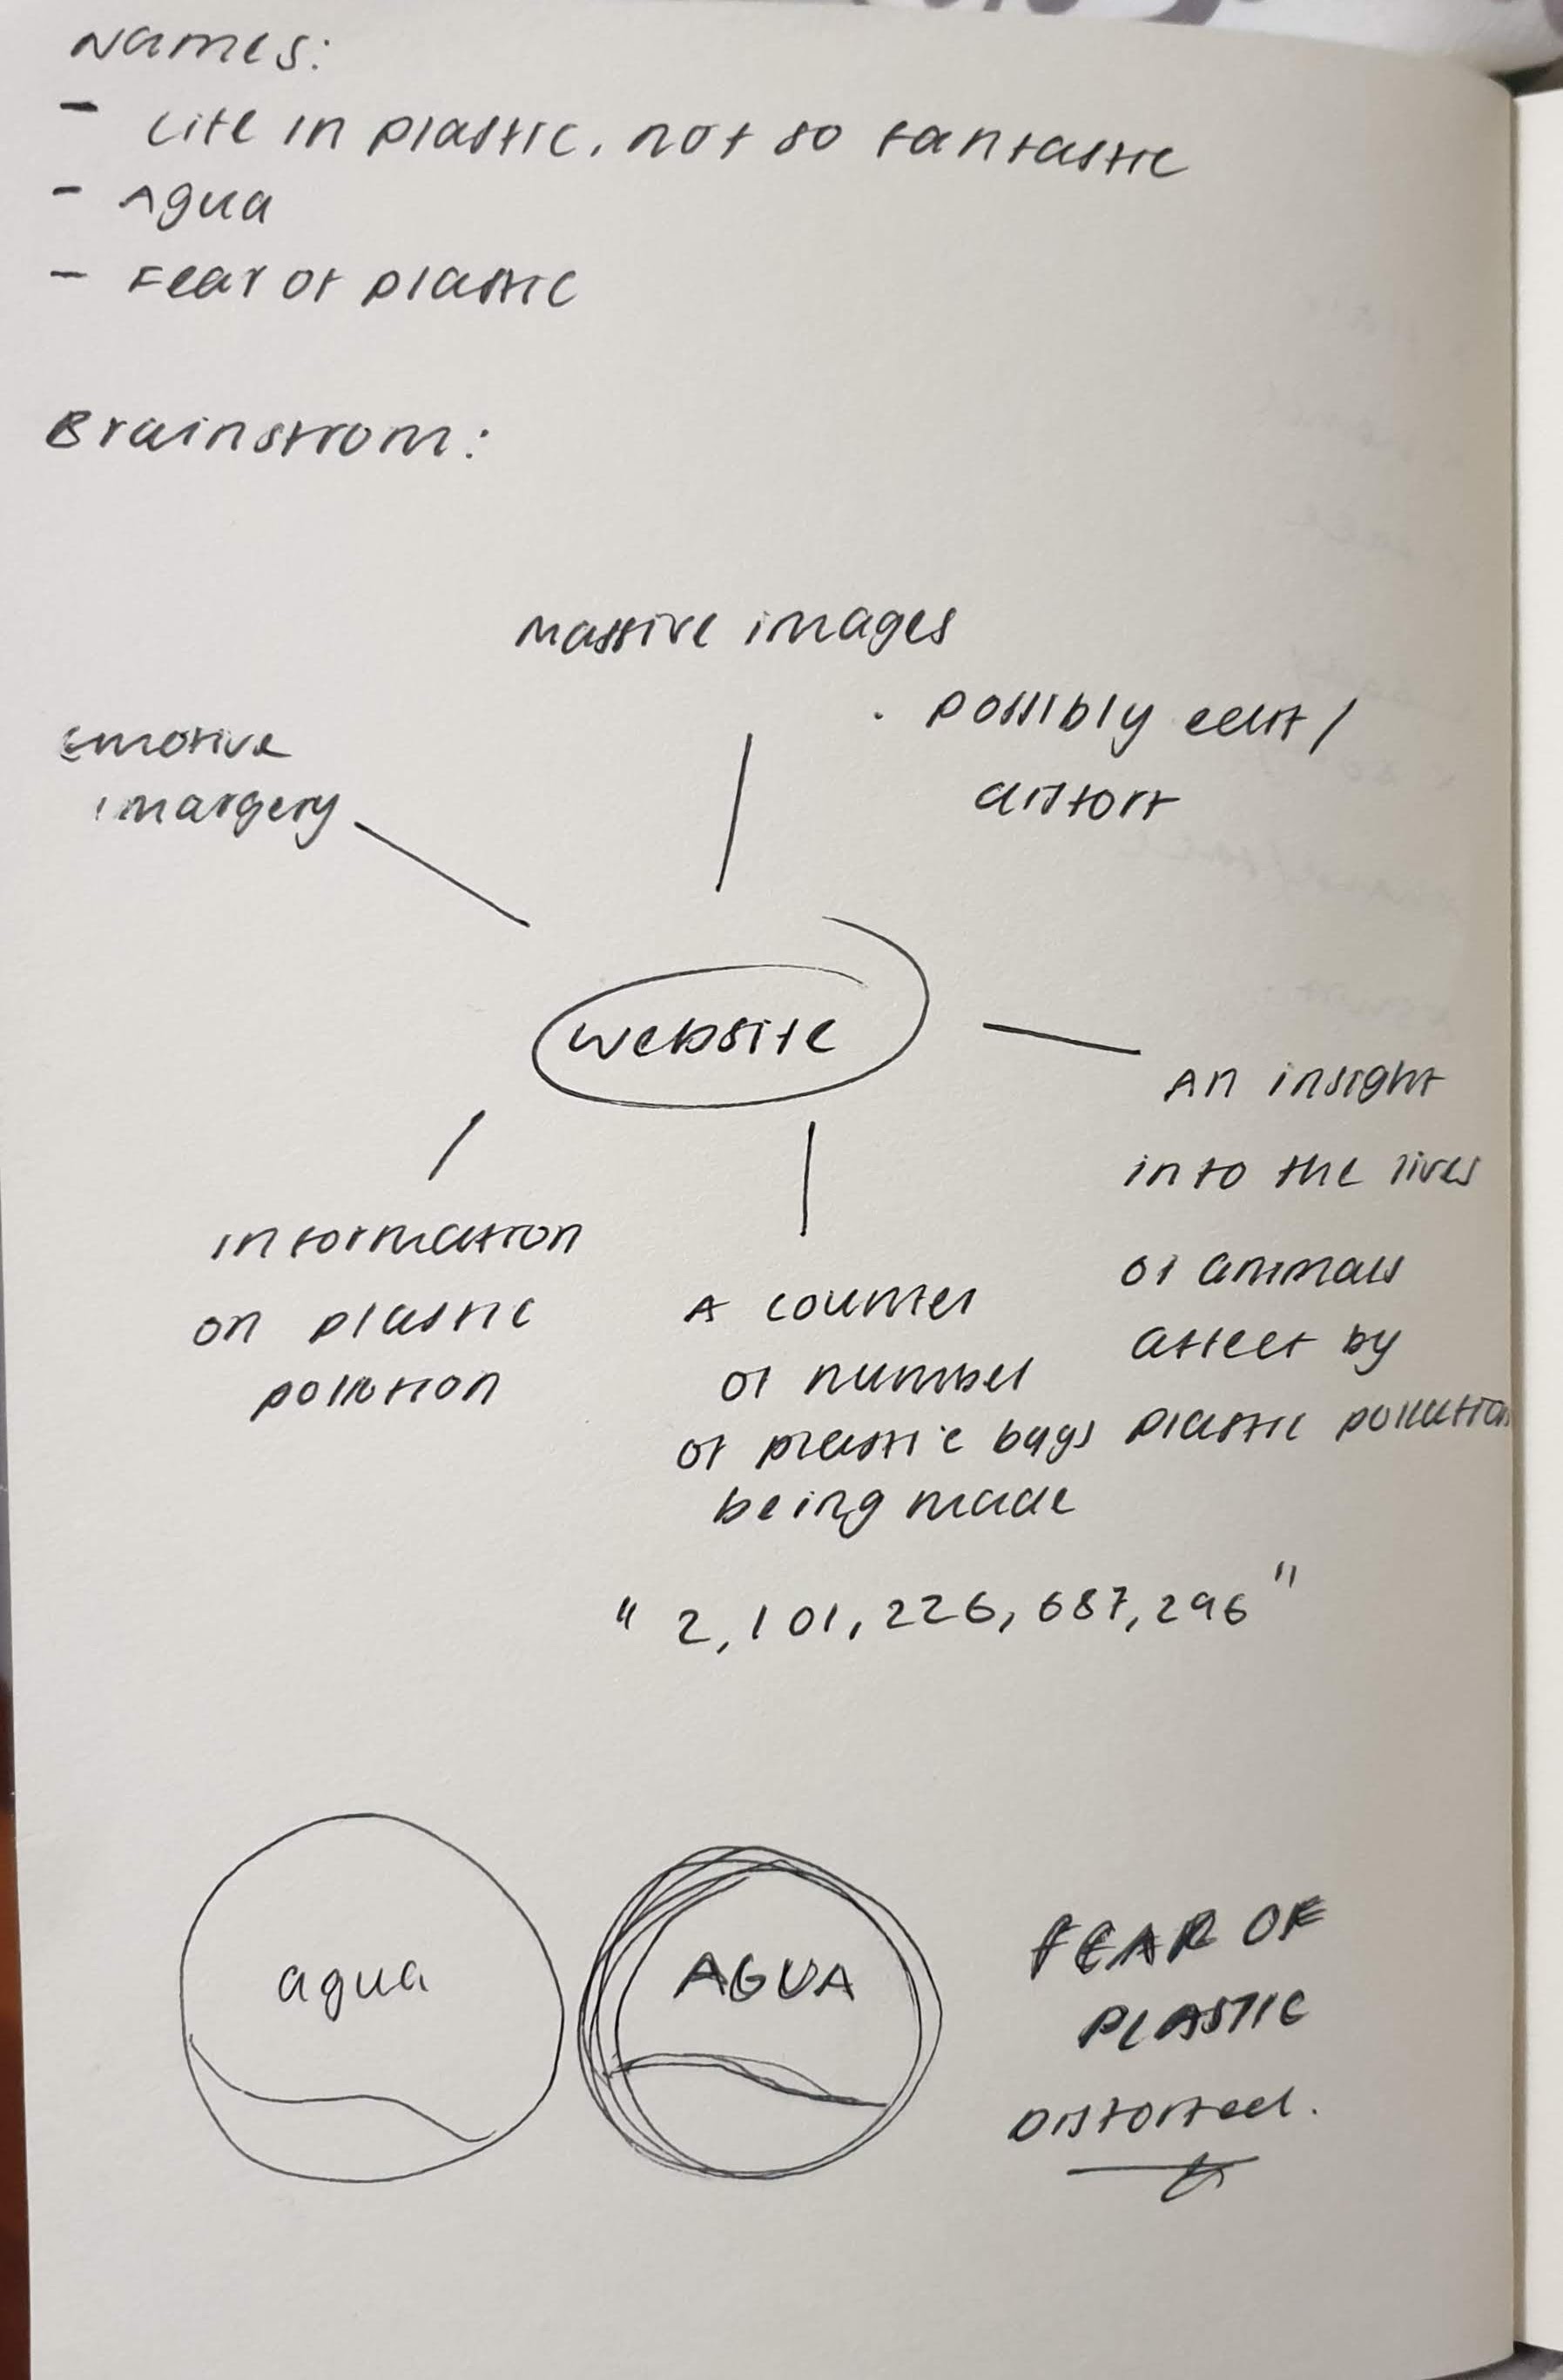 Names:
- Life in plastic, not so fantastic
- Agua
- Fear of plastic
Brainstrom:
Massive images
. possibly edit /
distort
Emotive
imargery
website
An insight
into the lives
of animals
affect by
plastic pollution
information
on plastic
pollution
A counter
of number
of plastic bags
being made
" 2,101,226,687,296 "
agua
AGUA
FEAR OF
PLASTIC
Distorted.